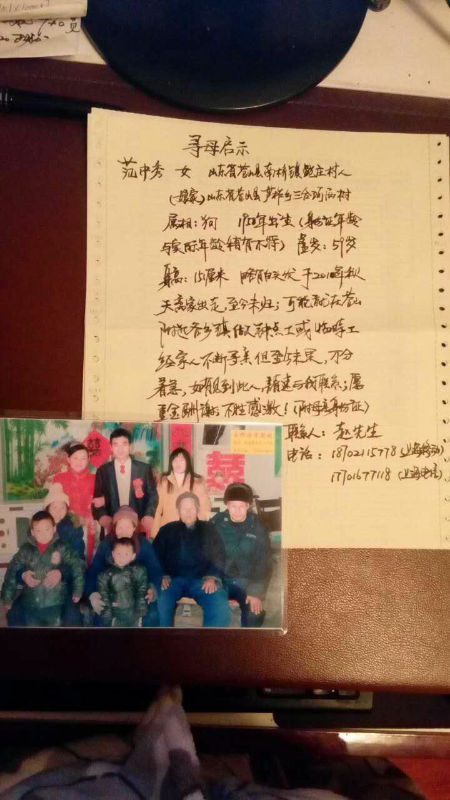 寻母启示
范中秀 女 山东省苍山县南桥镇 庄村人
(娘家)山东省苍山县芦柞乡三合 村
属相:狗 1958年出生(身份证年龄
与实际年龄稍有不符) 虚岁:59岁
身高:15厘米 略有白发 于2010年秋
天离家出走,至今未归;可能就在苍山
附近各乡镇做 钟点工或临时工
经家人不断寻亲但至今未见,万分
着急,如有见到此人,请速与我联系;愿
重金酬谢;不胜感激!(附母亲身份证)
联系人: 赵先生
电话: 18702115778(上海移动)
17701677118(上海电信)
囍
囍